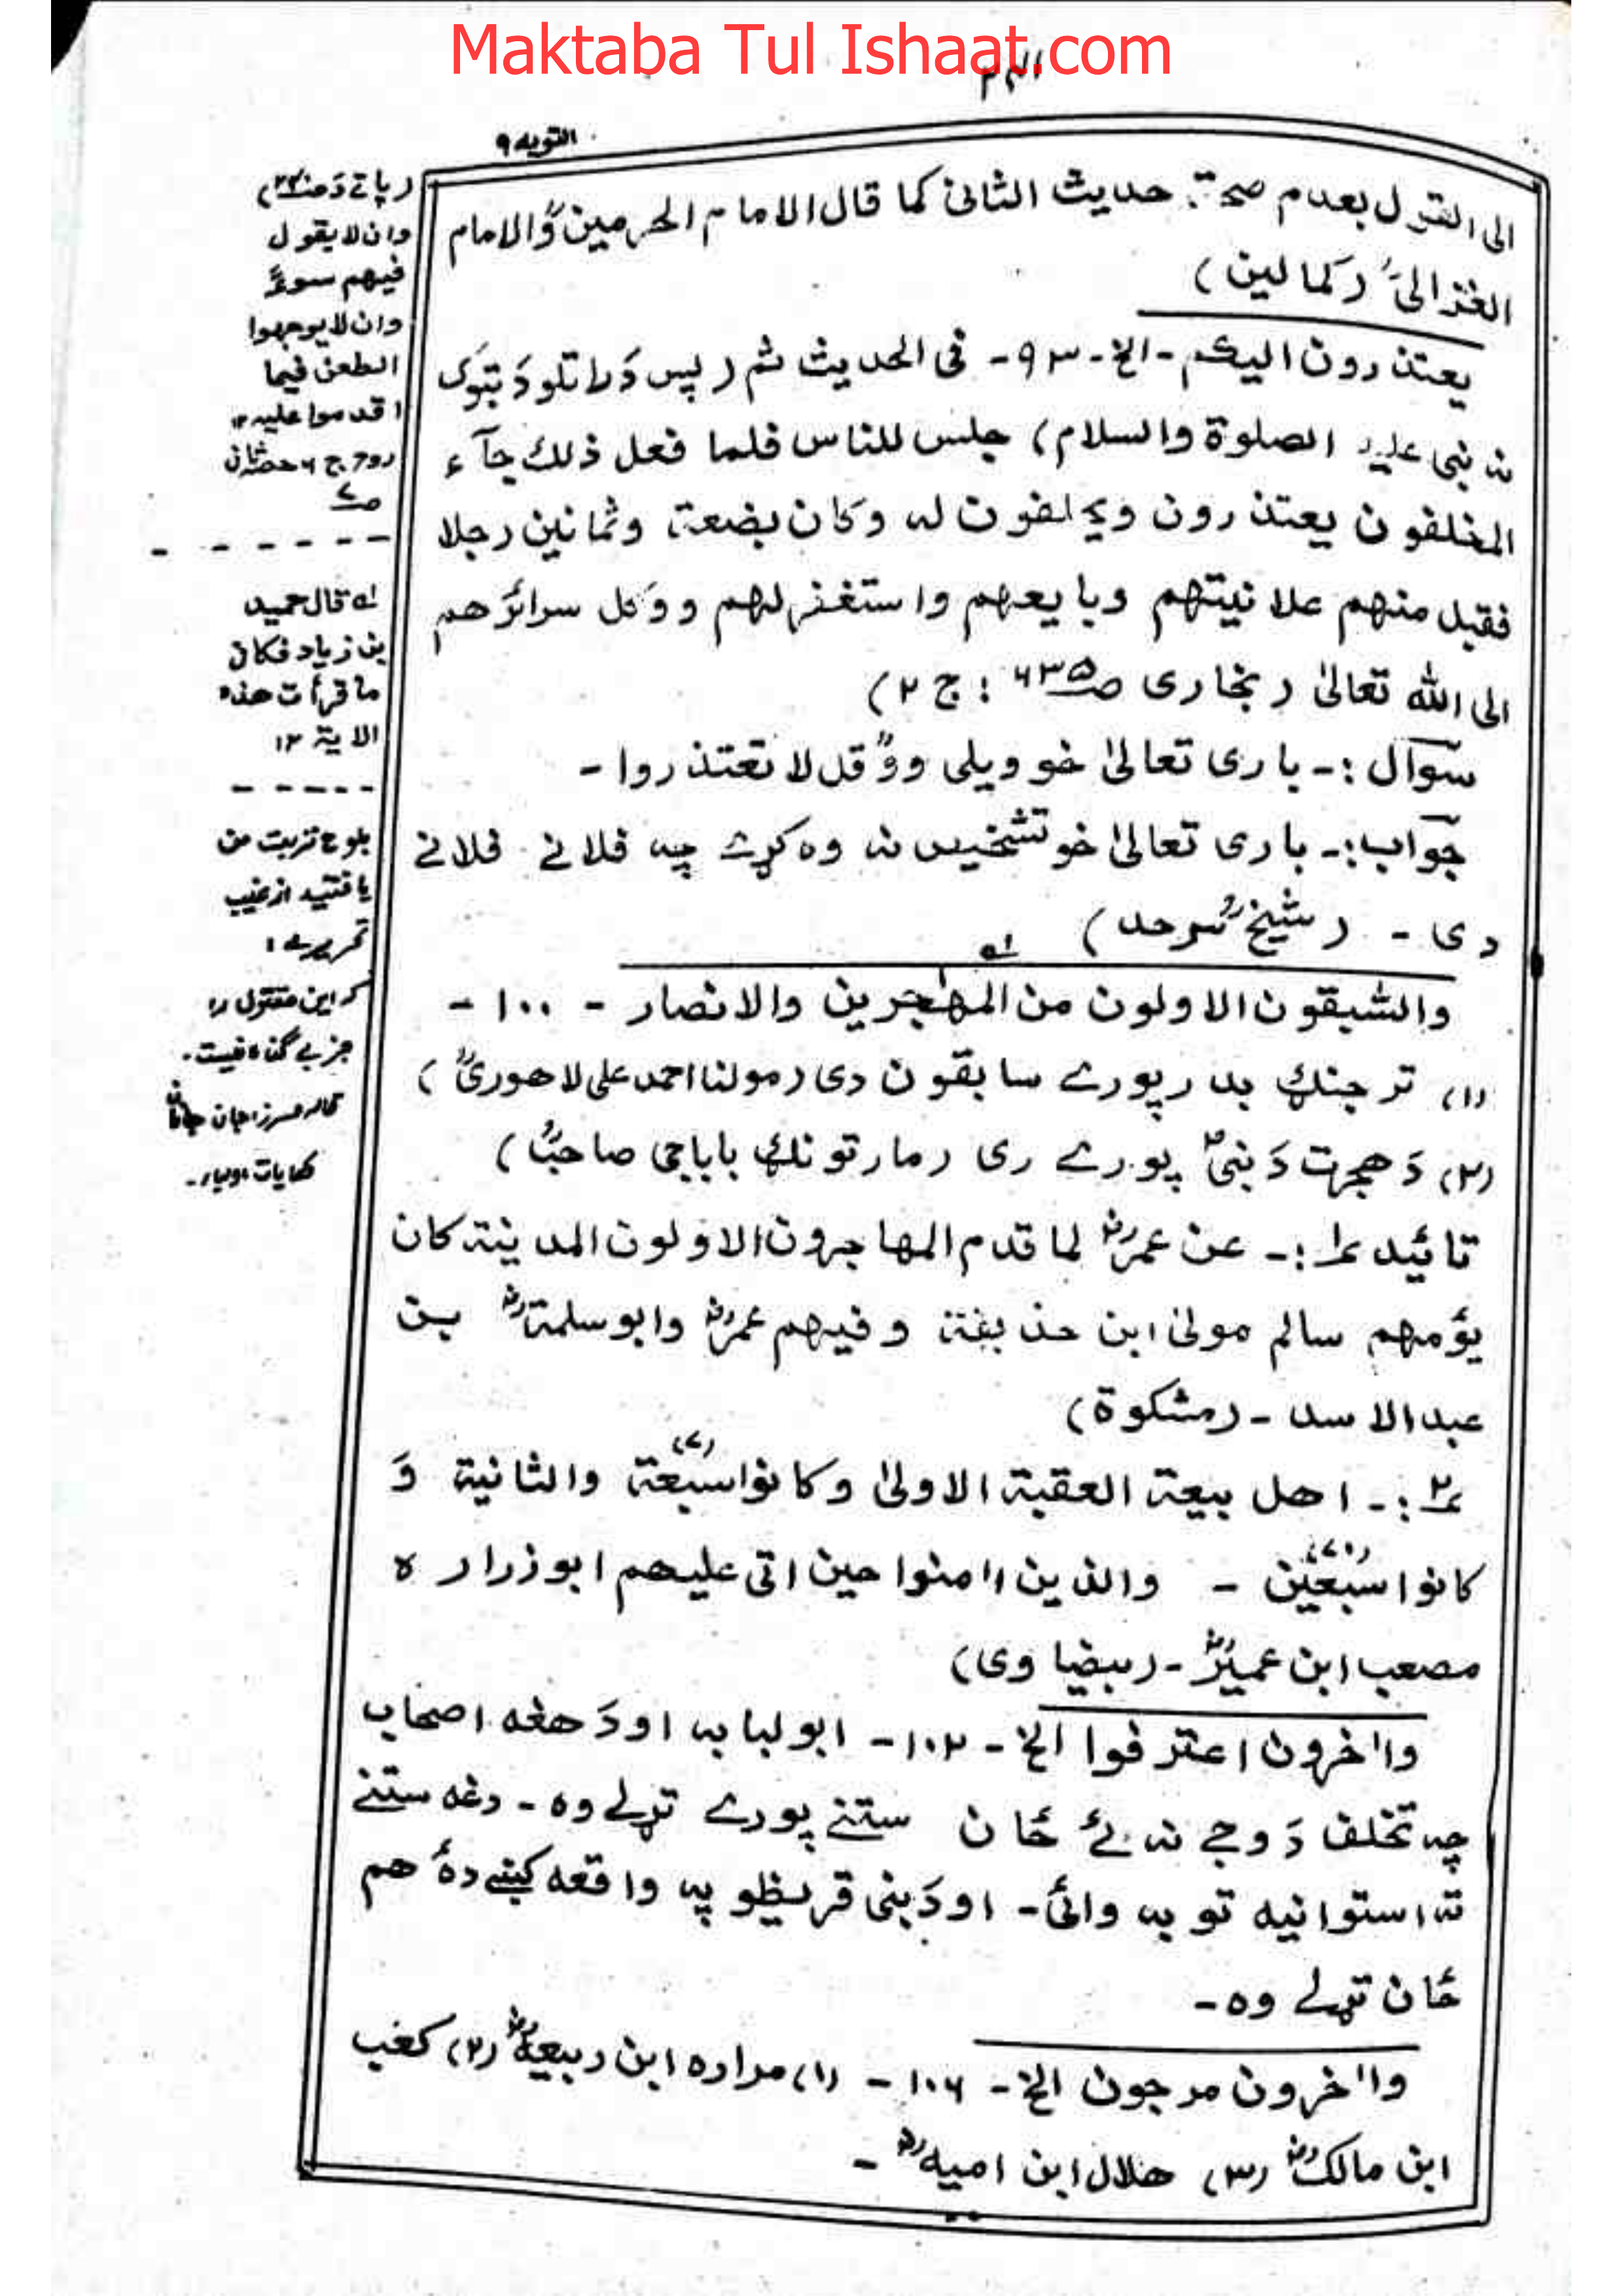 Maktaba Tul Ishaat.com
التوبه ۹
الى القول بعدم صحة حديث الثانى كما قال الامام الحرمينؒ والامام
الغزالىؒ (كمالين)
يعتذرون اليكم - الخ - ۹۳ - فى الحديث ثم (پس دَ راتلو دَ تبوك
نه نبى عليه الصلوة والسلام) جلس للناس فلما فعل ذلك جآء
المخلفون يعتذرون ويحلفون له وكان بضعة وثمانين رجلا
فقبل منهم علانيتهم وبايعهم واستغفر لهم ووكل سرائرهم
الى الله تعالىٰ (بخارى صـ۶۳۵ : ج ۲)
سوال :- بارى تعالىٰ خو ويلى وو قل لا تعتذروا -
جواب :- بارى تعالىٰ خو تشخيص نه وه كړے چه فلانے فلانے
دى - (شيخ سرحدؒ)
والسّٰبقون الاولون من المهٰجرين والانصار - ۱۰۰ -
(۱) تر جنګ بدر پورے سابقون دى (مولنا احمد على لاهورىؒ)
(۲) دَ هجرت دَ نبىؐ پورے رى (مارتونګ باباجى صاحبؒ)
تائيد ۱ :- عن عمرؓ لما قدم المهاجرون الاولون المدينة كان
يؤمهم سالم مولىٰ ابن حذيفة وفيهم عمرؓ وابو سلمةؓ بن
عبدالاسد - (مشكوة)
۲ :- اهل بيعة العقبة الاولىٰ وكانوا سبعة (۷) والثانية وَ
كانوا سبعين (۷۰) - والذين اٰمنوا حين اتى عليهم ابو زراره
مصعب ابن عميرؓ - (بيضاوى)
واٰخرون اعترفوا الخ - ۱۰۲ - ابو لبابه او دَ هغه اصحاب
چه تخلف دَ وجے نه ئے ځان ستنے پورے تړلے وه - دغه ستنے
ته استوانيه توبه وائى - او دَ بنى قريظو په واقعه كښے دهٔ هم
ځان تړلے وه -
واٰخرون مرجون الخ - ۱۰۶ - (۱) مراره ابن ربيعهؓ (۲) كعب
ابن مالكؓ (۳) هلال ابن اميهؓ -
وان لا يقول
فيهم سوءً
وان لا يوجهوا
الطعن فيما
اقدموا عليه ۱۲
روح ج ۶ حصه ثانى
لـه قال حميد
بن زياد فكان
ما قرأت هذه
الاية ۱۲
بلوح تربت من
يافتيد از غيب
تحريرے :
كه اين مقتول را
جز بے گناه نيست